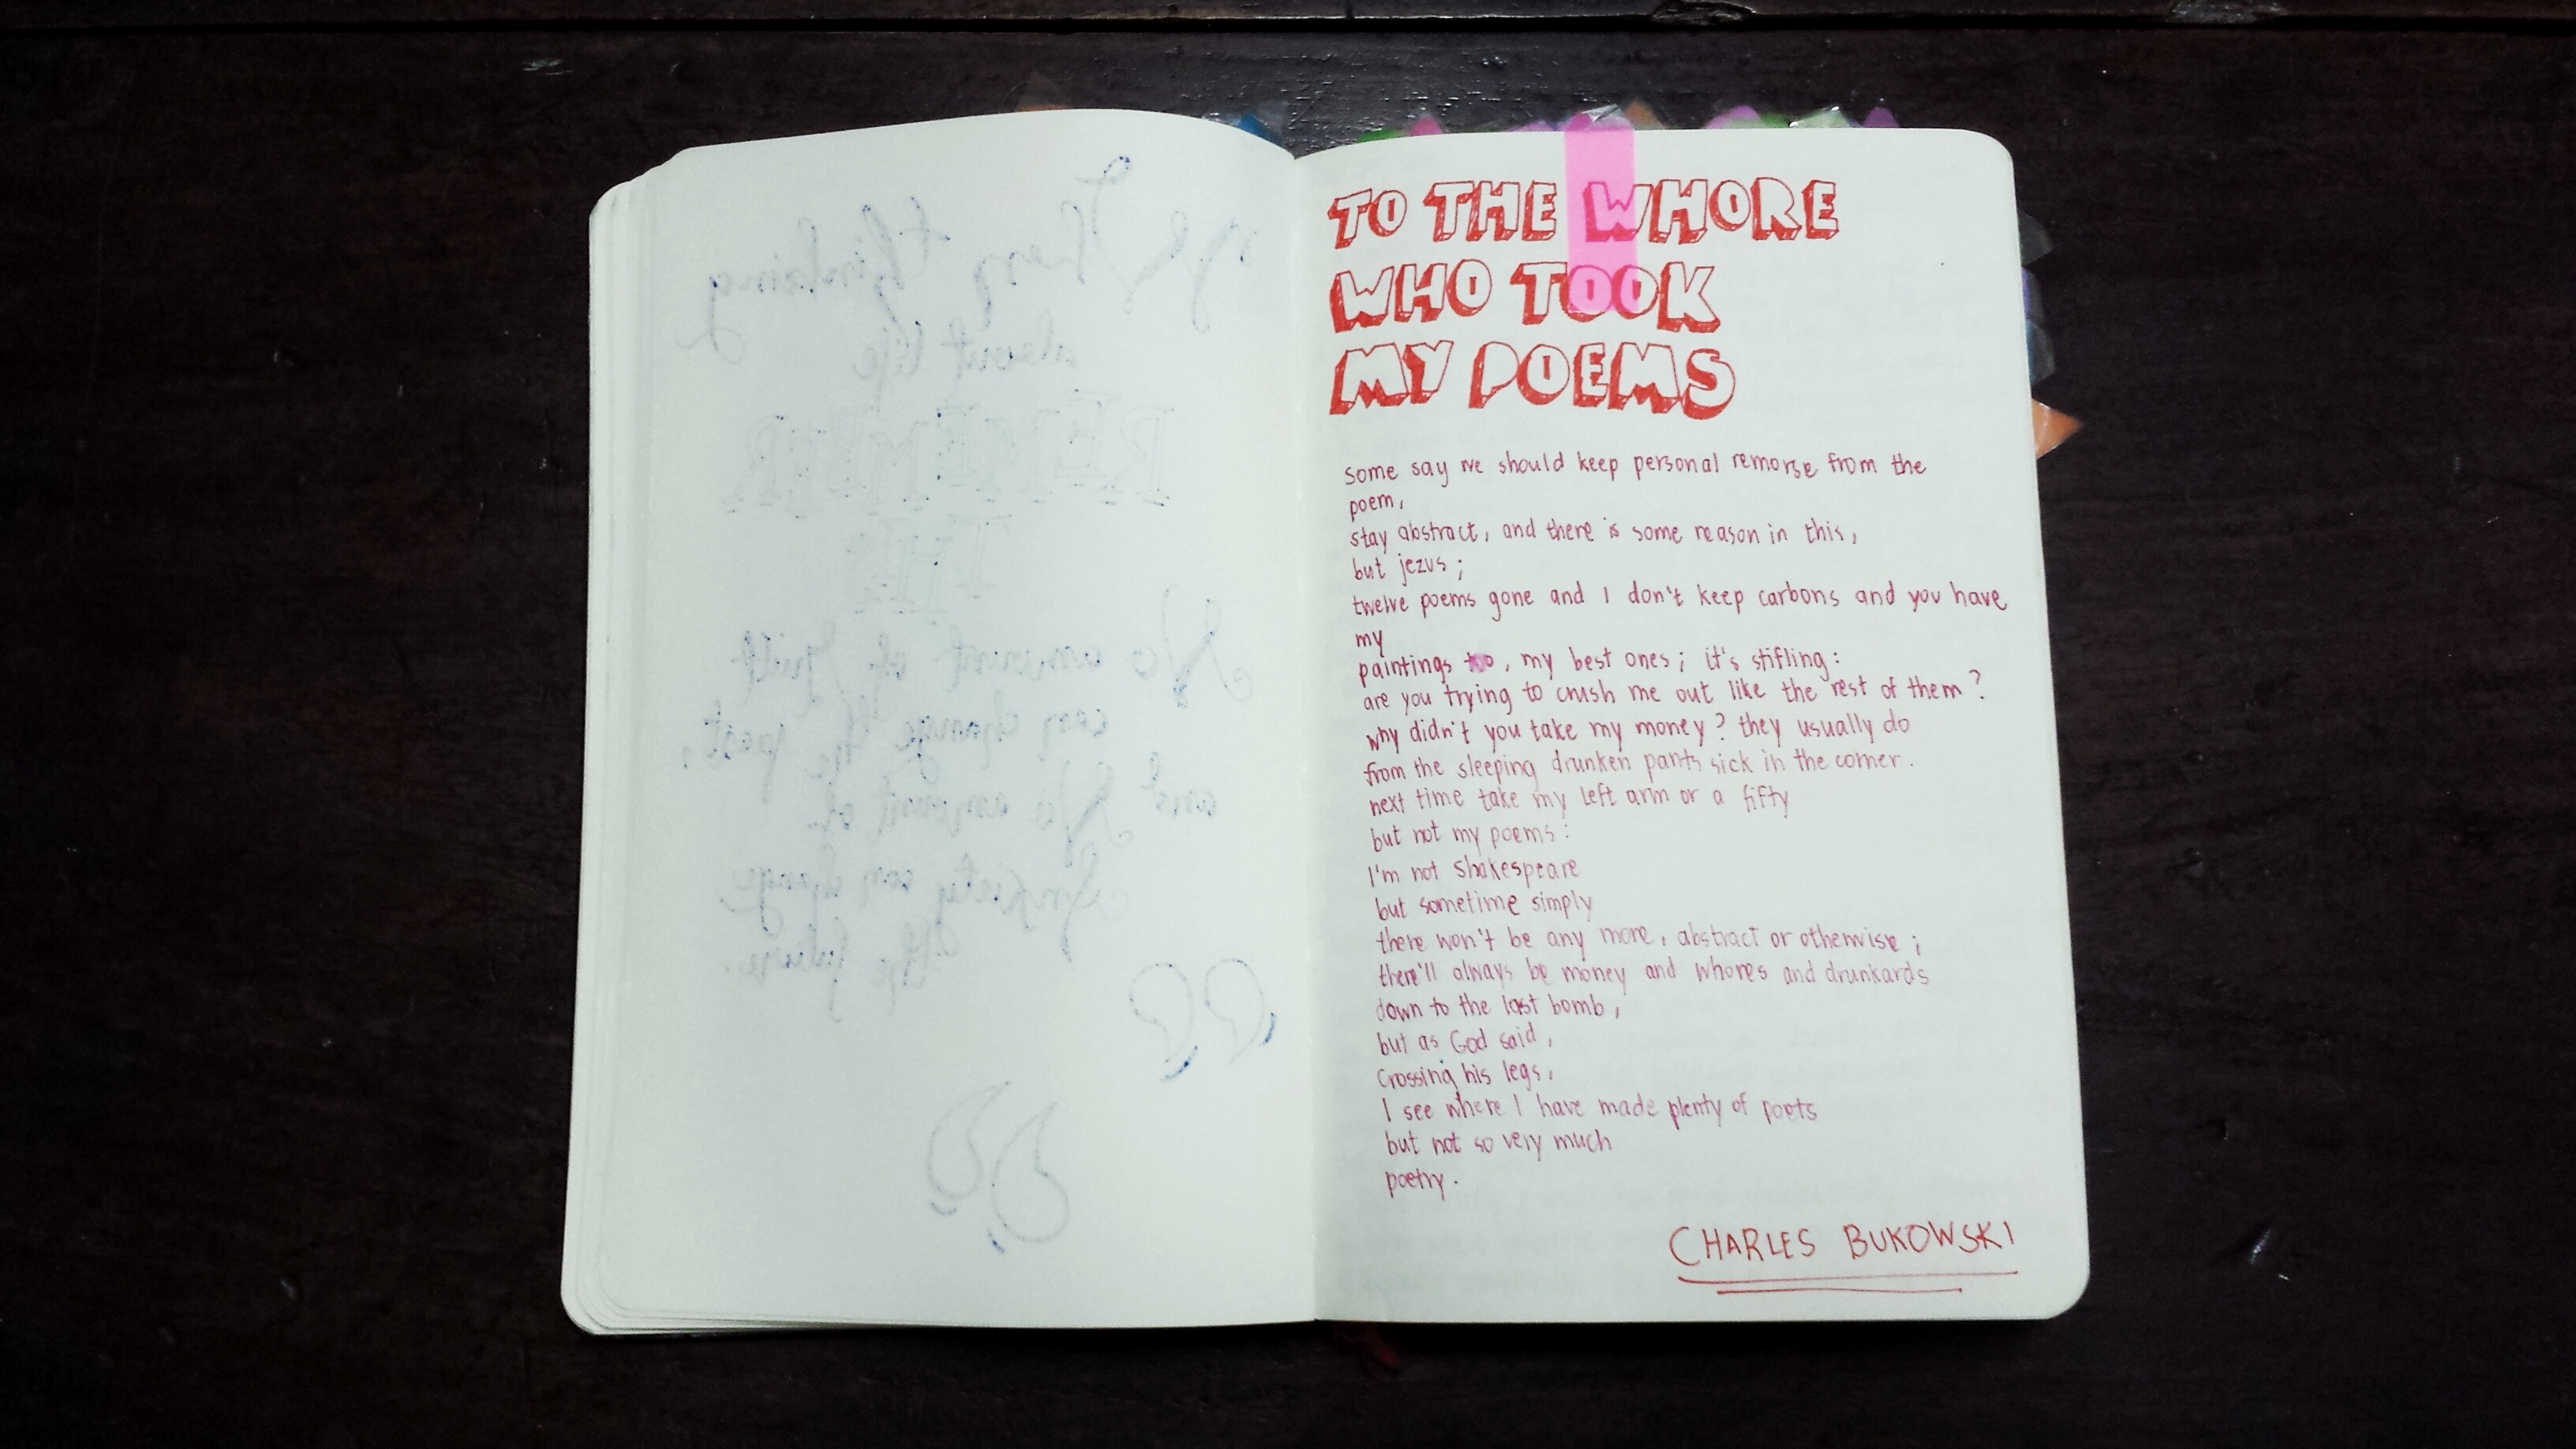 When thinking
about life
REMEMBER
THIS
No amount of guilt
can change the past,
and No amount of
Anxiety can change
the future.
TO THE WHORE
WHO TOOK
MY POEMS
some say we should keep personal remorse from the
poem,
stay abstract, and there is some reason in this,
but jezus;
twelve poems gone and I don't keep carbons and you have
my
paintings too, my best ones; it's stifling:
are you trying to crush me out like the rest of them?
why didn't you take my money? they usually do
from the sleeping drunken pants sick in the corner.
next time take my left arm or a fifty
but not my poems:
I'm not Shakespeare
but sometime simply
there won't be any more, abstract or otherwise;
there'll always be money and whores and drunkards
down to the last bomb,
but as God said,
crossing his legs,
I see where I have made plenty of poets
but not so very much
poetry.
CHARLES BUKOWSKI